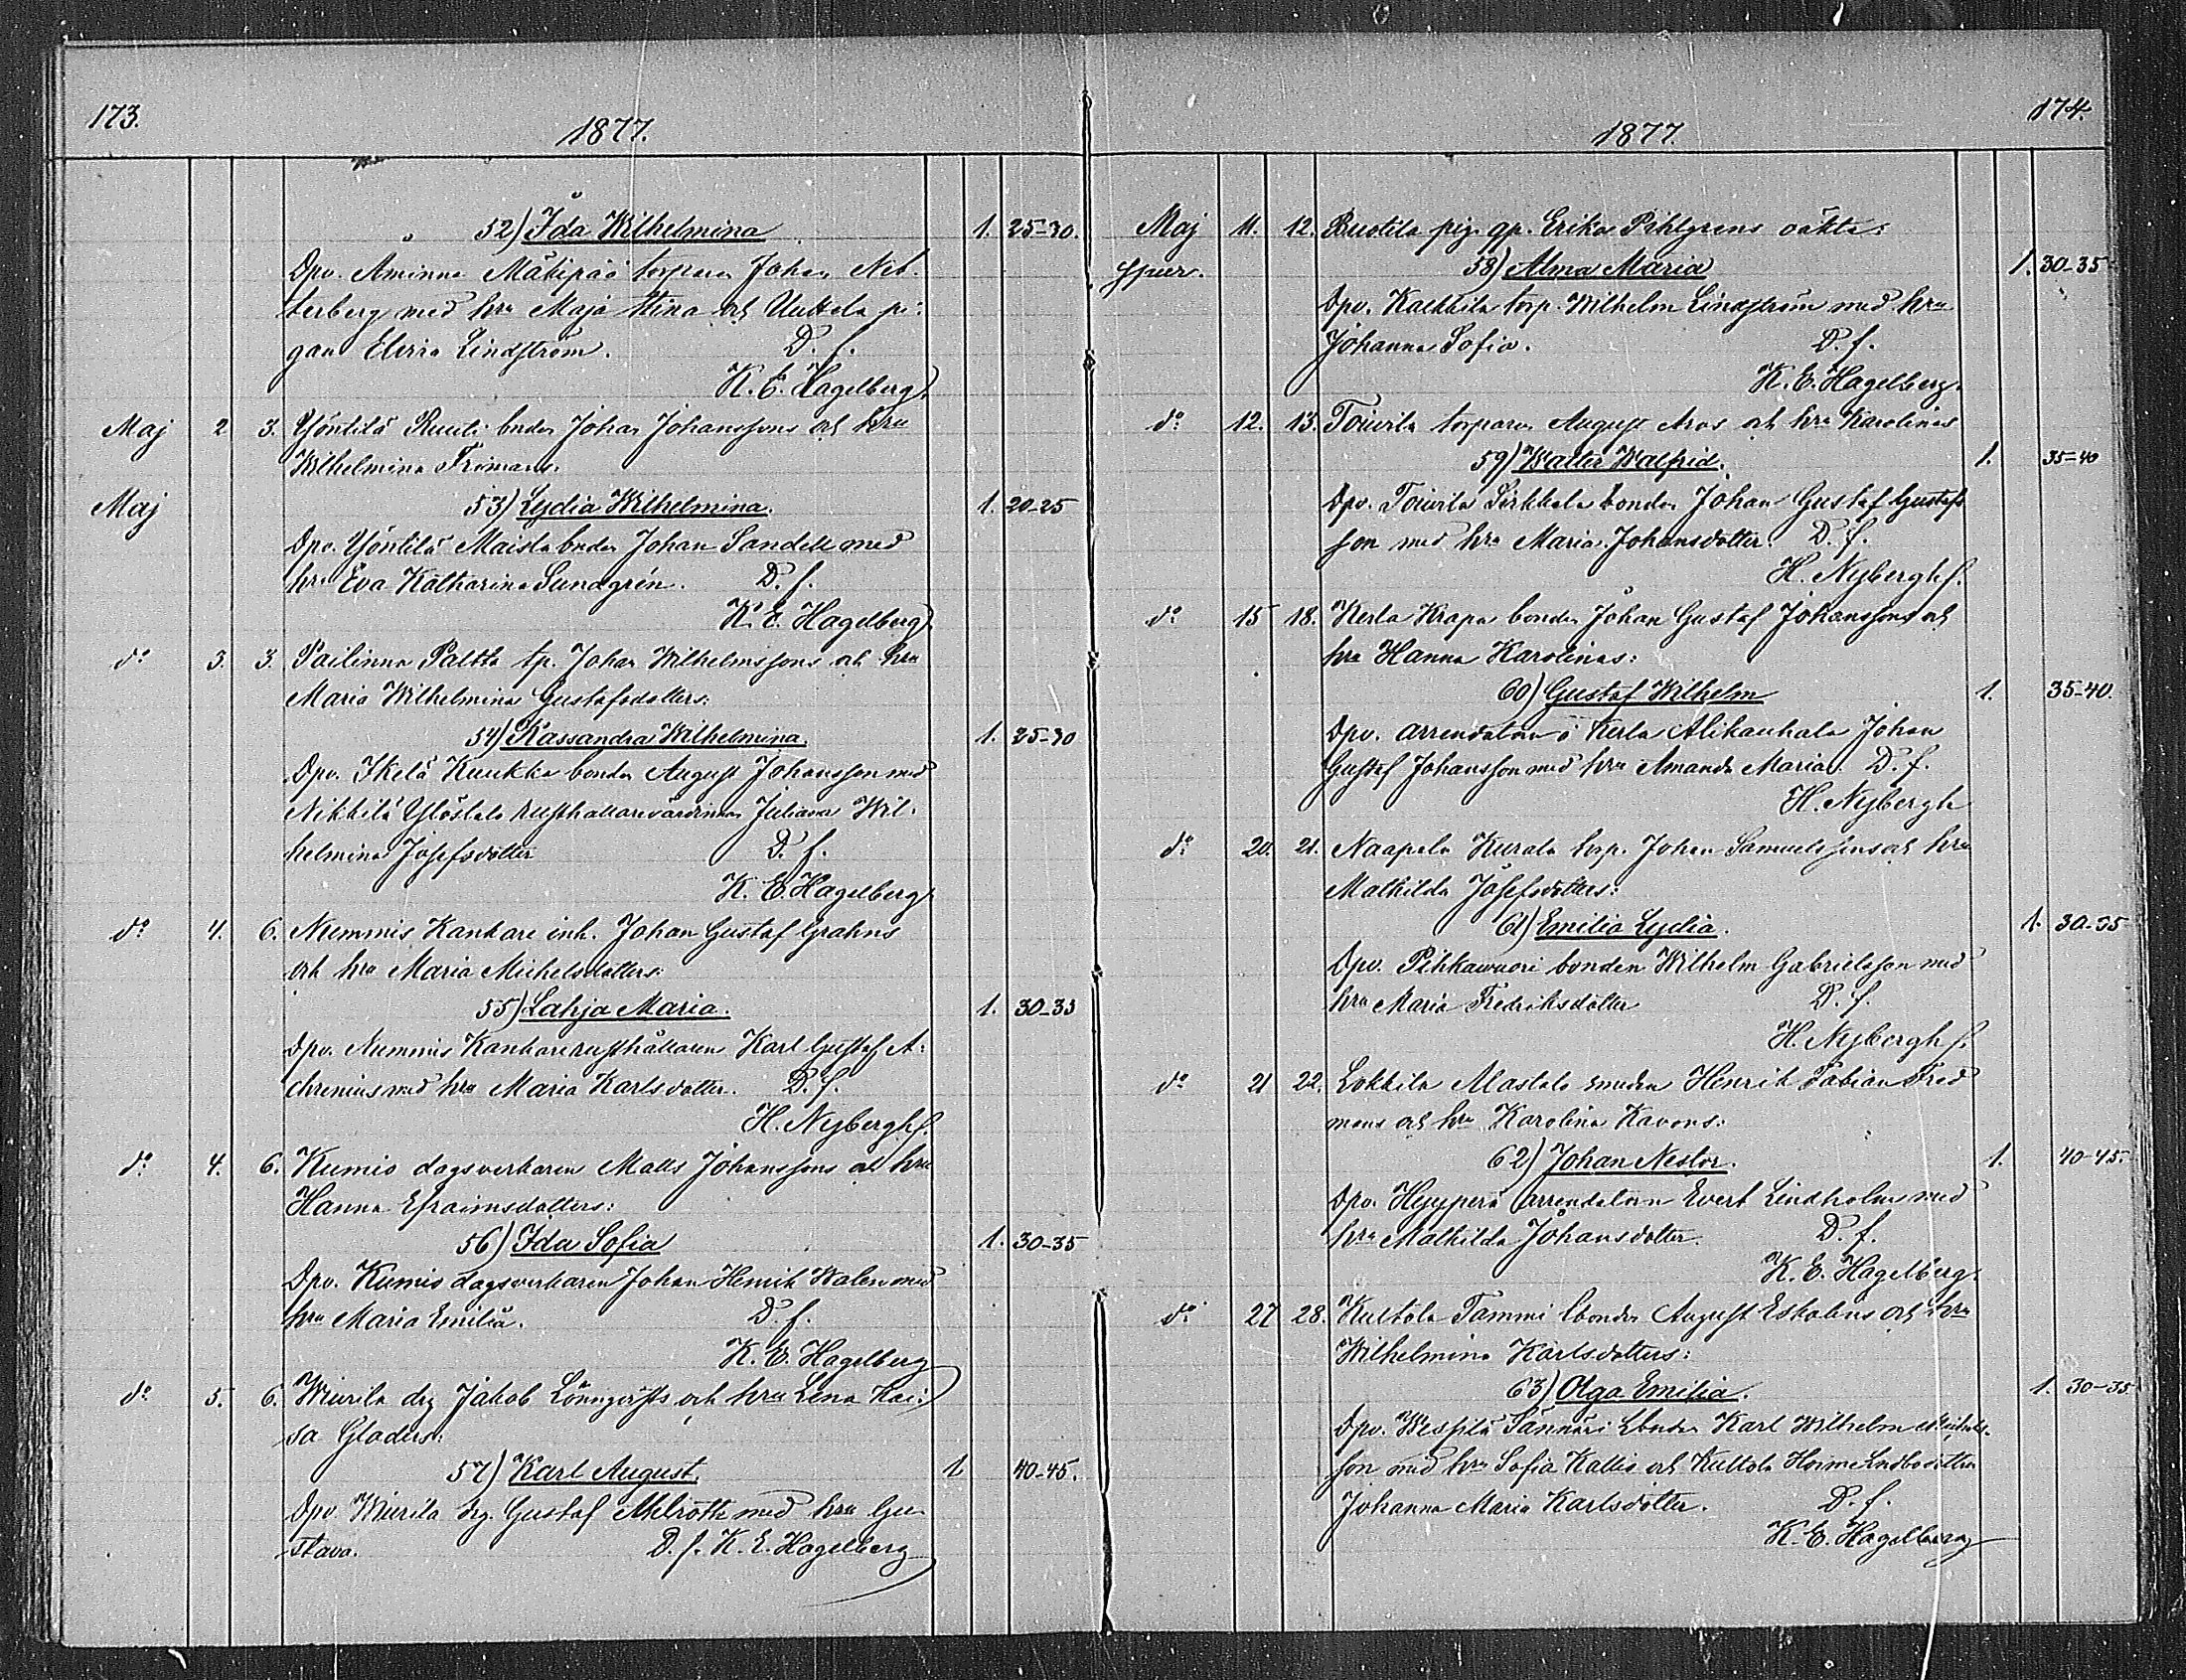 173.
1877.
52) Ida Wilhelmina 1. 25-30.
Dpv. Aminne Mäkipää torparen Johan Net-
terberg med hru Maja Stina och Uuttela pi-
gan Elvira Lindström. D. f.
K. E. Hagelberg.
Maj 2 3. Yöntilä Ruuti bonden Johan Johanssons och hru
Wilhelmina Frimans.
Maj 53) Lydia Wilhelmina. 1. 20-25
Dpv. Yöntilä Maisla bonden Johan Sandell med
hru Eva Katharina Sundgrén. D. f.
K. E. Hagelberg.
do 3. 3. Pailinna Paltta tp. Johan Wilhelmssons och hru
Maria Wilhelmina Gustafsdotters:
54) Kassandra Wilhelmina. 1. 25-30
Dpv. Ikelä Kuukka bonden August Johansson med
Nikkilä Ylöstalo rusthållarevärdinnan Juliana Wil-
helmina Josefsdotter D. f.
K. E. Hagelberg.
do 4. 6. Nummis Kankare inh. Johan Gustaf Grahns
och hru Maria Michelsdotters:
55) Lahja Maria. 1. 30-35
Dpv. Nummis Kankare rusthållaren Karl Gustaf A-
chrenius med hru Maria Karlsdotter. D. f.
H. Nybergh f.
do 4. 6. Kumio dagsverkaren Matts Johanssons och hru
Hanna Efraimsdotters:
56) Ida Sofia 1. 30-35
Dpv. Kumio dagsverkaren Johan Henrik Walen med
hru Maria Emilia. D. f.
K. E. Hagelberg
do 5. 6. Wiurila drg Jakob Lönnqvists och hru Lena Kai-
sa Gladers:
57) Karl August. 1 40-45.
Dpv. Wiurila drg. Gustaf Melroth med hru Gu-
stava. D. f. K. E. Hagelberg
174.
1877.
Maj 11. 12. Ruotila pig. qp. Erika Pihlgrens oäkta:
58) Alma Maria 1. 30-35
Dpv. Kaukkila torp. Wilhelm Lindström med hru
Johanna Sofia. D. f.
K. E. Hagelberg.
do 12. 13. Toivila torparen August Aros och hru Karolinas
59) Walter Walfrid. 1. 35-40
Dpv. Toivila Sirkkala bonden Johan Gustaf Gustafs
son med hru Maria Johansdotter. D. f.
H. Nybergh f.
do 15 18. Kerla Krapu bonden Johan Gustaf Johanssons och
hru Hanna Karolinas:
60) Gustaf Wilhelm 1. 35-40.
Dpv. arrendatorn å Kerla Alikauhala Johan
Gustaf Johansson med hru Amanda Maria. D. f.
H. Nybergh
do 20. 21. Naapala Kurala torp. Johan Samuelssons och hru
Mathilda Josefsdotters:
61) Emilia Lydia. 1. 30-35
Dpv. Pihkawuori bonden Wilhelm Gabrielsson med
hru Maria Fredriksdotter D. f.
H. Nybergh f.
do 21 22. Lokkila Alastalo smeden Henrik Fabian Fred
mans och hru Karolina Kavons:
62) Johan Nestor. 1. 40-45.
Dpv. Hyyperä arrendatorn Evert Lindholm med
hru Mathilda Johansdotter. D. f.
K. E. Hagelberg.
do 27 28. Kultola Tammi bonden August Eskolins och hru
Wilhelmina Karlsdotters:
63) Olga Emilia. 1. 30-35
Dpv. Wespilä Sännäri bonden Karl Wilhelm
son med hru Sofia Kallio och Kultola
Johanna Maria Karlsdotter. D. f.
K. E. Hagelberg